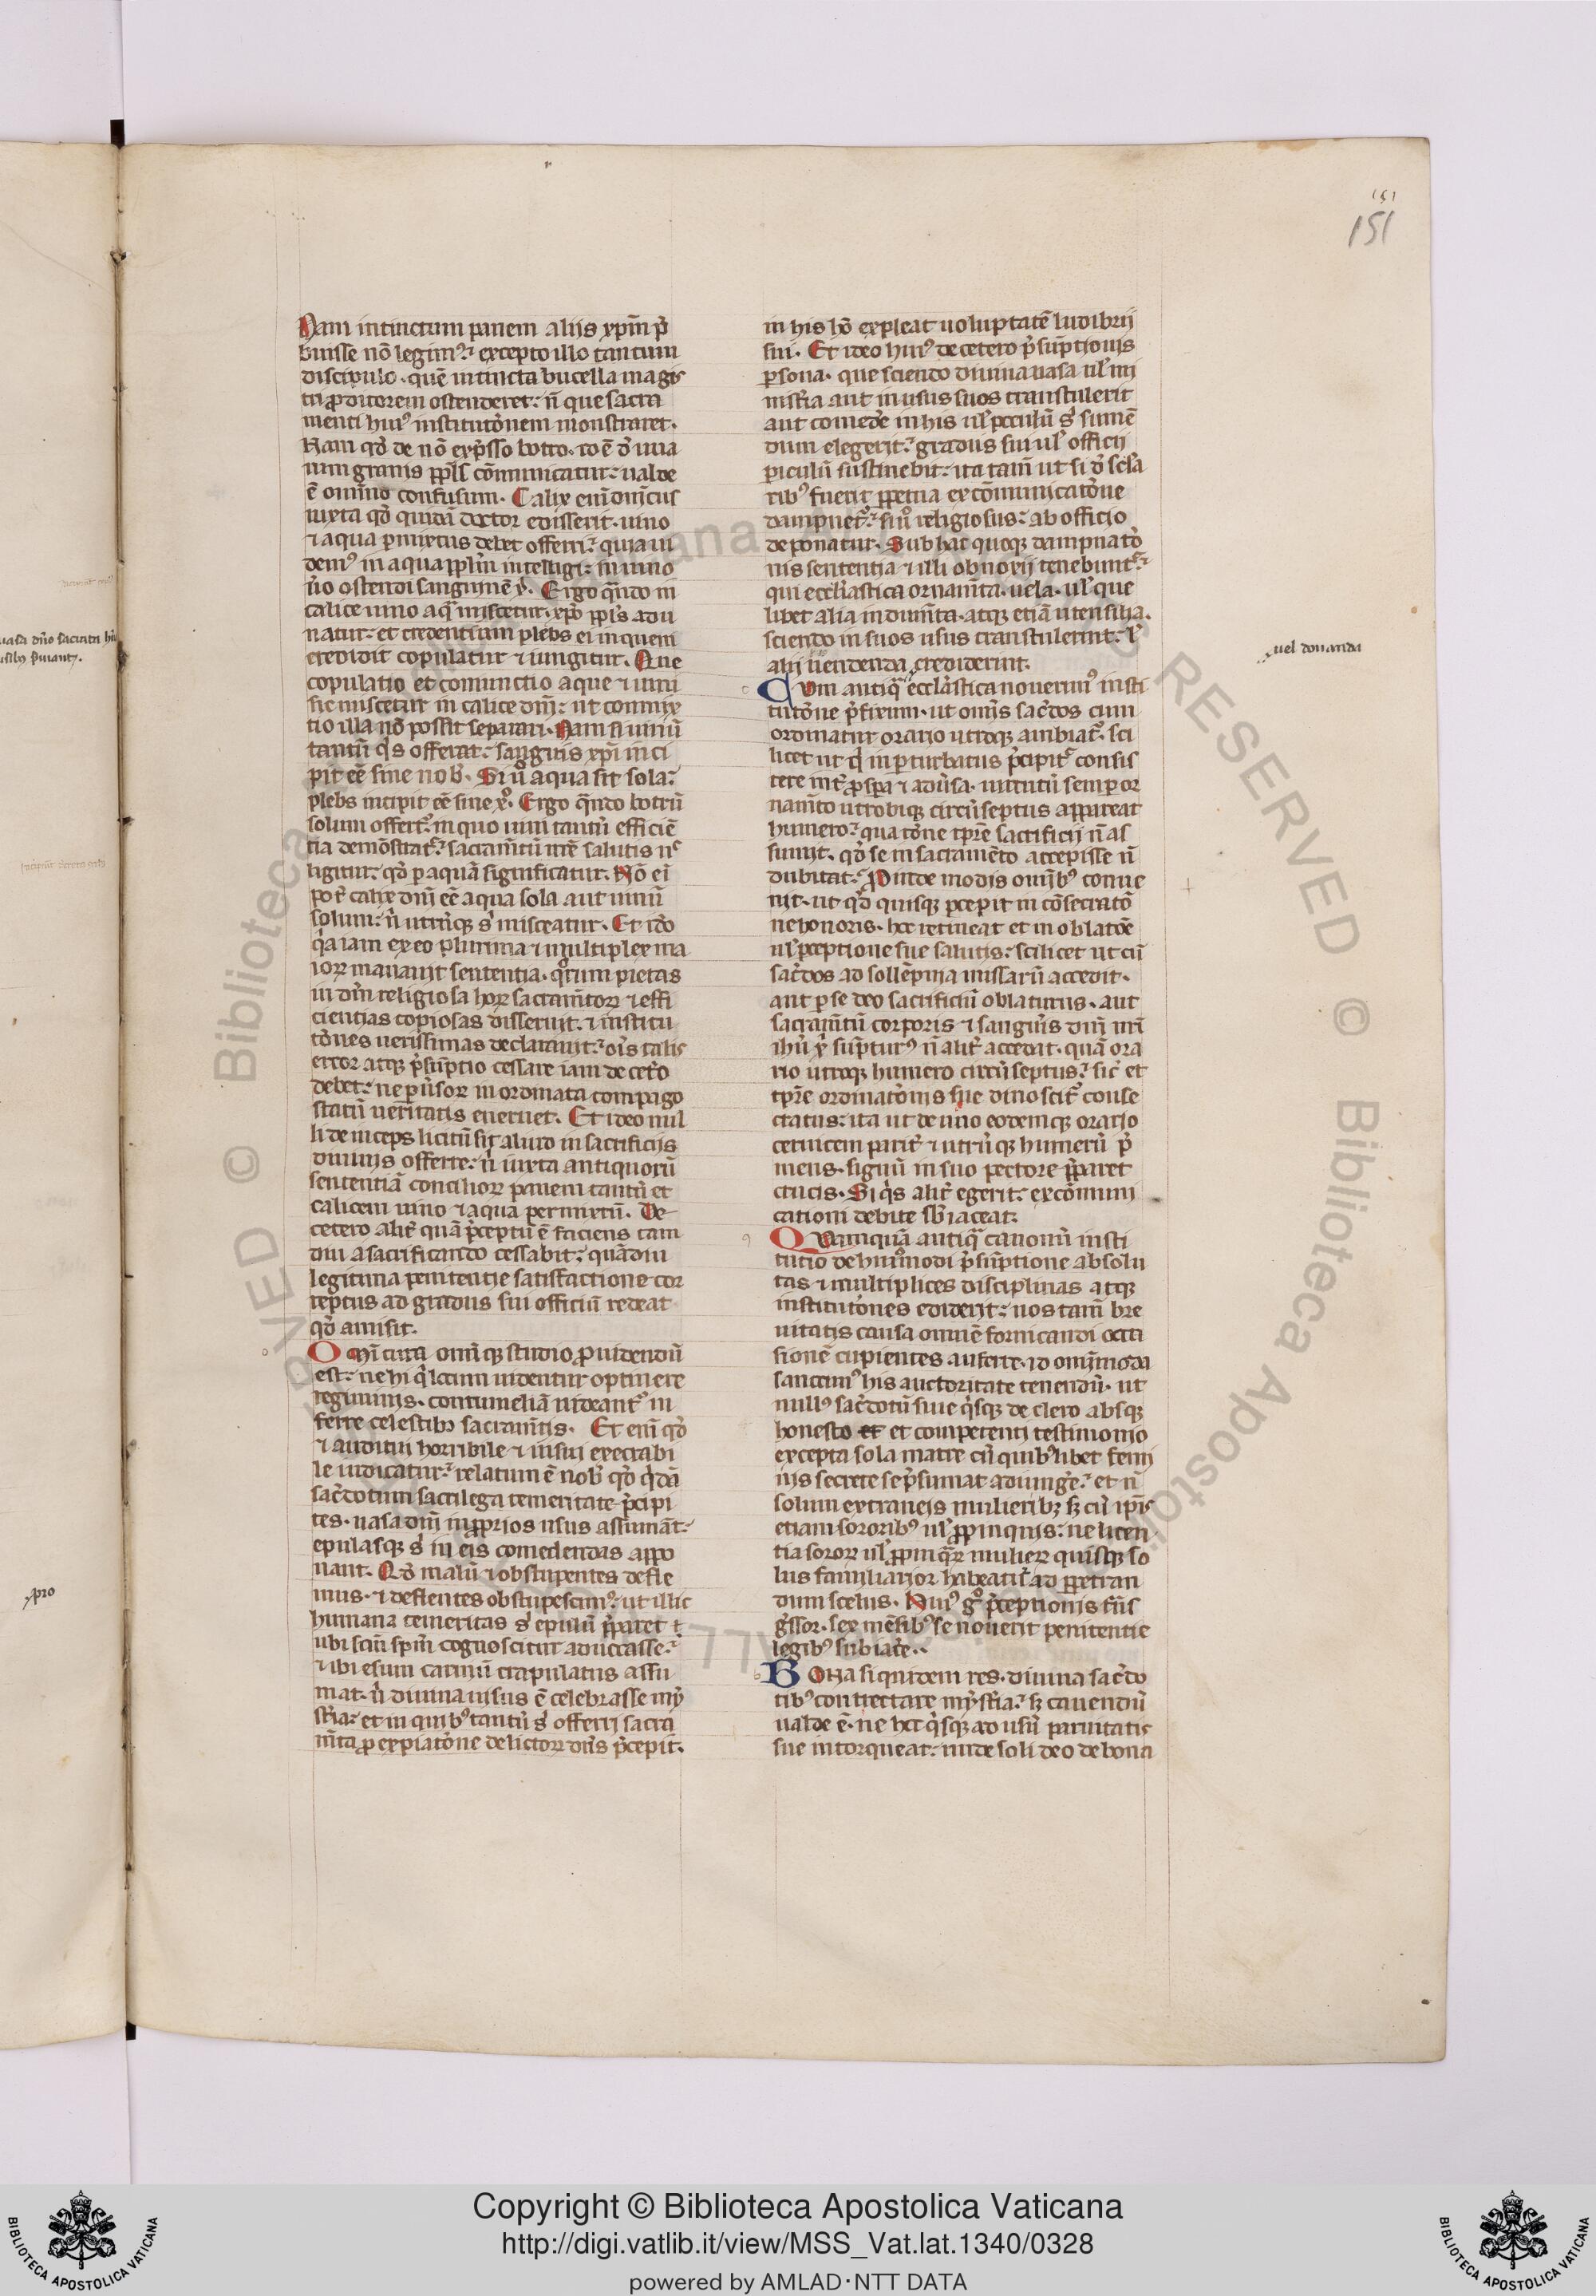 151
151
Nam intinctum panem aliis xp̄m p̄
buisse nō legim⁹: excepto illo tantum
discipulo. quē intincta bucella magis
tri ꝓditorem ostenderet: ñ que sacra
menti hui⁹ institutōnem monstraret.
Nam qd̄ de nō exp̄sso botro. id ē d̄ uua
rum granis pp̄ls cōmunicatur: ualde
ē omīno confusum. Calix enī dn̄icus
iuxta qd̄ quidā doctor edisserit. uino
⁊ aqua permixtus debet offerri: quia ui
dem⁹ in aqua pp̄lm intelligi: in uino
ū̄o ostendi sanguinē x̄. Ergo qn̄do in
calice uino aqua miscetur. xp̄o pp̄ls adu
natur: et credentium plebs ei in quem
credidit copulatur ⁊ iungitur. Que
copulatio et coniunctio aque ⁊ uini
sic miscetur in calice dn̄i: ut commix
tio illa nō possit separari. Nam si uinū
tantū q̄s offerat: sanguis xp̄i inci
pit eē sine nob̄. Si u̇̄ aqua sit sola:
plebs incipit eē sine x̄o. Ergo qn̄do botrū
solum offert: in quo uini tantū efficiē
tia demōstrat: sacramn̄tū nr̄e salutis n̄
ligitur: qd̄ p aquā significatur. Nō eī
pot̄ calix dn̄i eē aqua sola aut uinū
solum: ñ utrūque s̄ misceatur. Et id̄o
q̄a iam ex eo plurima ⁊ multiplex ma
ioꝝ manauit sententia. quorum pietas
in dm̄ religiosa hoꝝ sacramn̄toꝝ ⁊ effi
cientias copiosas disseruit. ⁊ institu
tōnes uerissimas declarauit: oīs talis
error atque p̄sūptio cessare iam de cet̄o
debet: ne ꝑuersoꝝ inordinata compago
statū ueritatis eneruet. Et ideo nul
li deinceps licitū sit aliud in sacrificiis
diuinis offerre: ñ iuxta antiquorū
sententiā concilioꝝ panem tantū et
calicem uino ⁊ aqua permixtū. De
cetero alit̄ quā p̄ceptū ē faciens tam
diu a sacrificando cessabit: quādiu
legitima penitentie satisfactione cor
reptus ad gradus sui officiū redeat
qd̄ amisit.
Omī cura omī que studio ꝓuidendū
est: ne hi q̄ locum uidentur optinere
regiminis. contumeliā uideant̄ in
ferre celestibꝫ sacramn̄tis. Et enī qd̄
⁊ auditui horribile ⁊ uisui execrabi
le iudicatur: relatum ē nob̄ qd̄ q̄dā
sac̄dotum sacrilega temeritate p̄cipi
tes. uasa dn̄i in ꝓprios usus assumāt:
epulasque s̄ in eis comedendas appo
nant. Qd̄ malū ⁊ obstupentes defle
mus. ⁊ deflentes obstupescim⁹: ut illic
humana temeritas s̄ epulū p̄paret
ubi scm̄ spm̄ cognoscitur aduocasse:
⁊ ibi esum carniū crapulatus assu
mat. ū̇ diuina uisus ē celebrasse mȳ
stīa: et in quib⁹ tantū s̄ offerri sacra
mn̄ta ꝓ expiatōne delictoꝝ dn̄s p̄cepit.
in his hō expleat uoluptatē ludibrii
sui. Et ideo hui⁹ decetero p̄sūptionis
ꝑsona. que sciendo diuina uasa ul̄ mi
nistīa aut in usus suos transtulerit
aut comede̅ in his ul̄ poculū s̄ sumē
dum elegerit: gradus sui ul̄ officii
ꝑiculū sustinebit: ita tam̄ ut si d̄ sc̄la
rib⁹ fuerit ꝑpetua excōmunicatōne
dampnet̄: si u̇̄ religiosus: ab officio
deponatur. Sub hac quoque dampnatō
nis sententia ⁊ illi obnoxii tenebunt̄:
qui eccl̄iastica ornamn̄ta. uela. ul̄ que
libet alia indumn̄ta. atque etiā utensilia.
sciendo in suos usus transtulerint: l̄
alii uendenda crediderint.
uel donanda
Cum antiqua eccl̄iastica nouerim⁹ insti
tutōne p̄fixum. ut omīs sac̄dos cum
ordinatur orario utroque ambiat̄. sci
licet ut q̄ inperturbatus p̄cipit̄ consis
tere int̄ ꝓspa ⁊ adūsa. uirtutū semper or
namn̄to utrobique circūseptus appareat
humero: qua tōne tp̄re sacrificii ñ as
sumit. qd̄ se in sacramēto accepisse ñ
dubitat: Proinde modis omīb⁹ conue
nit. ut qd̄ quisque ꝑcepit in cōsecratō
ne honoris. hoc retineat et in oblatōe
ul̄ ꝑceptione sue salutis: scilicet ut cū
sac̄dos ad sollēpnia missarū accedit.
aut p se deo sacrificiū oblaturus. aut
sacramn̄tū corporis ⁊ sanguīs dn̄i nr̄i
ihū x̄ sūpturus ñ alit̄ accedat. quā ora
rio utroque humero circūseptus: sic̄ et
tp̄re ordinatōnis sue dinoscit̄ conse
cratus: ita ut de uno eodemque orario
ceruicem parit̄ ⁊ utrūque humerū p̄
mens. signū in suo pectore p̄paret
crucis. Si q̄s alit̄ egerit: excōmuni
cationi debite sb̄iaceat.
Quamquā antiqua canonū insti
tutio de hui⁹modi p̄sūptione absolu
tas ⁊ multiplices disciplinas atque
institutōnes ediderit: nos tam̄ bre
uitatis causa omnē fornicandi occa
sionē cupientes auferre. id omīmoda
sanccim⁹ his auctoritate tenendū. ut
null⁹ sac̄dotū siue q̄sque de clero absque
honesto et et competenti testimonio
excepta sola matre cū quib⁹libet femi
nis secrete se p̄sumat adiunge̅: et ñ
solum extraneis mulieribꝫ sꝫ cū ip̄is
etiam sororib⁹ ul̄ ꝓpinquis: ne licen
tia soroꝝ ul̄ ꝓpinquaꝝ mulieꝝ quisque so
lus familiarior habeatur ad ꝑpetran
dum scelus. Hui⁹ gͦ p̄ceptionis tn̄s
gressor. sex mēsib⁹ se nouerit penitentie
legib⁹ subiace̅.
Bona siquidem res. diuina sac̄do
tib⁹ contrectare mȳstīa: sꝫ cauendū
ualde ē. ne hoc q̄sque ad usū prauitatis
sue intorqueat: unde soli deo de bona
Copyright © Biblioteca Apostolica Vaticana
http://digi.vatlib.it/view/MSS_Vat.lat.1340/0328
powered by AMLAD·NTT DATA
BIBLIOTECA APOSTOLICA VATICANA
BIBLIOTECA APOSTOLICA VATICANA